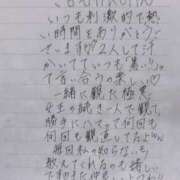 いつも刺激的で熱
い時間をありがとうご
ざいます♡2人して汗
かいていてもっ「暑い!」っ
て言い合うの楽しい♡
一緒に観た極悪
女王の続き一人で観て
勝手にハマって何回も
何回も観返してたよ
毎回私の知らない
教えてくれるのも嬉しい